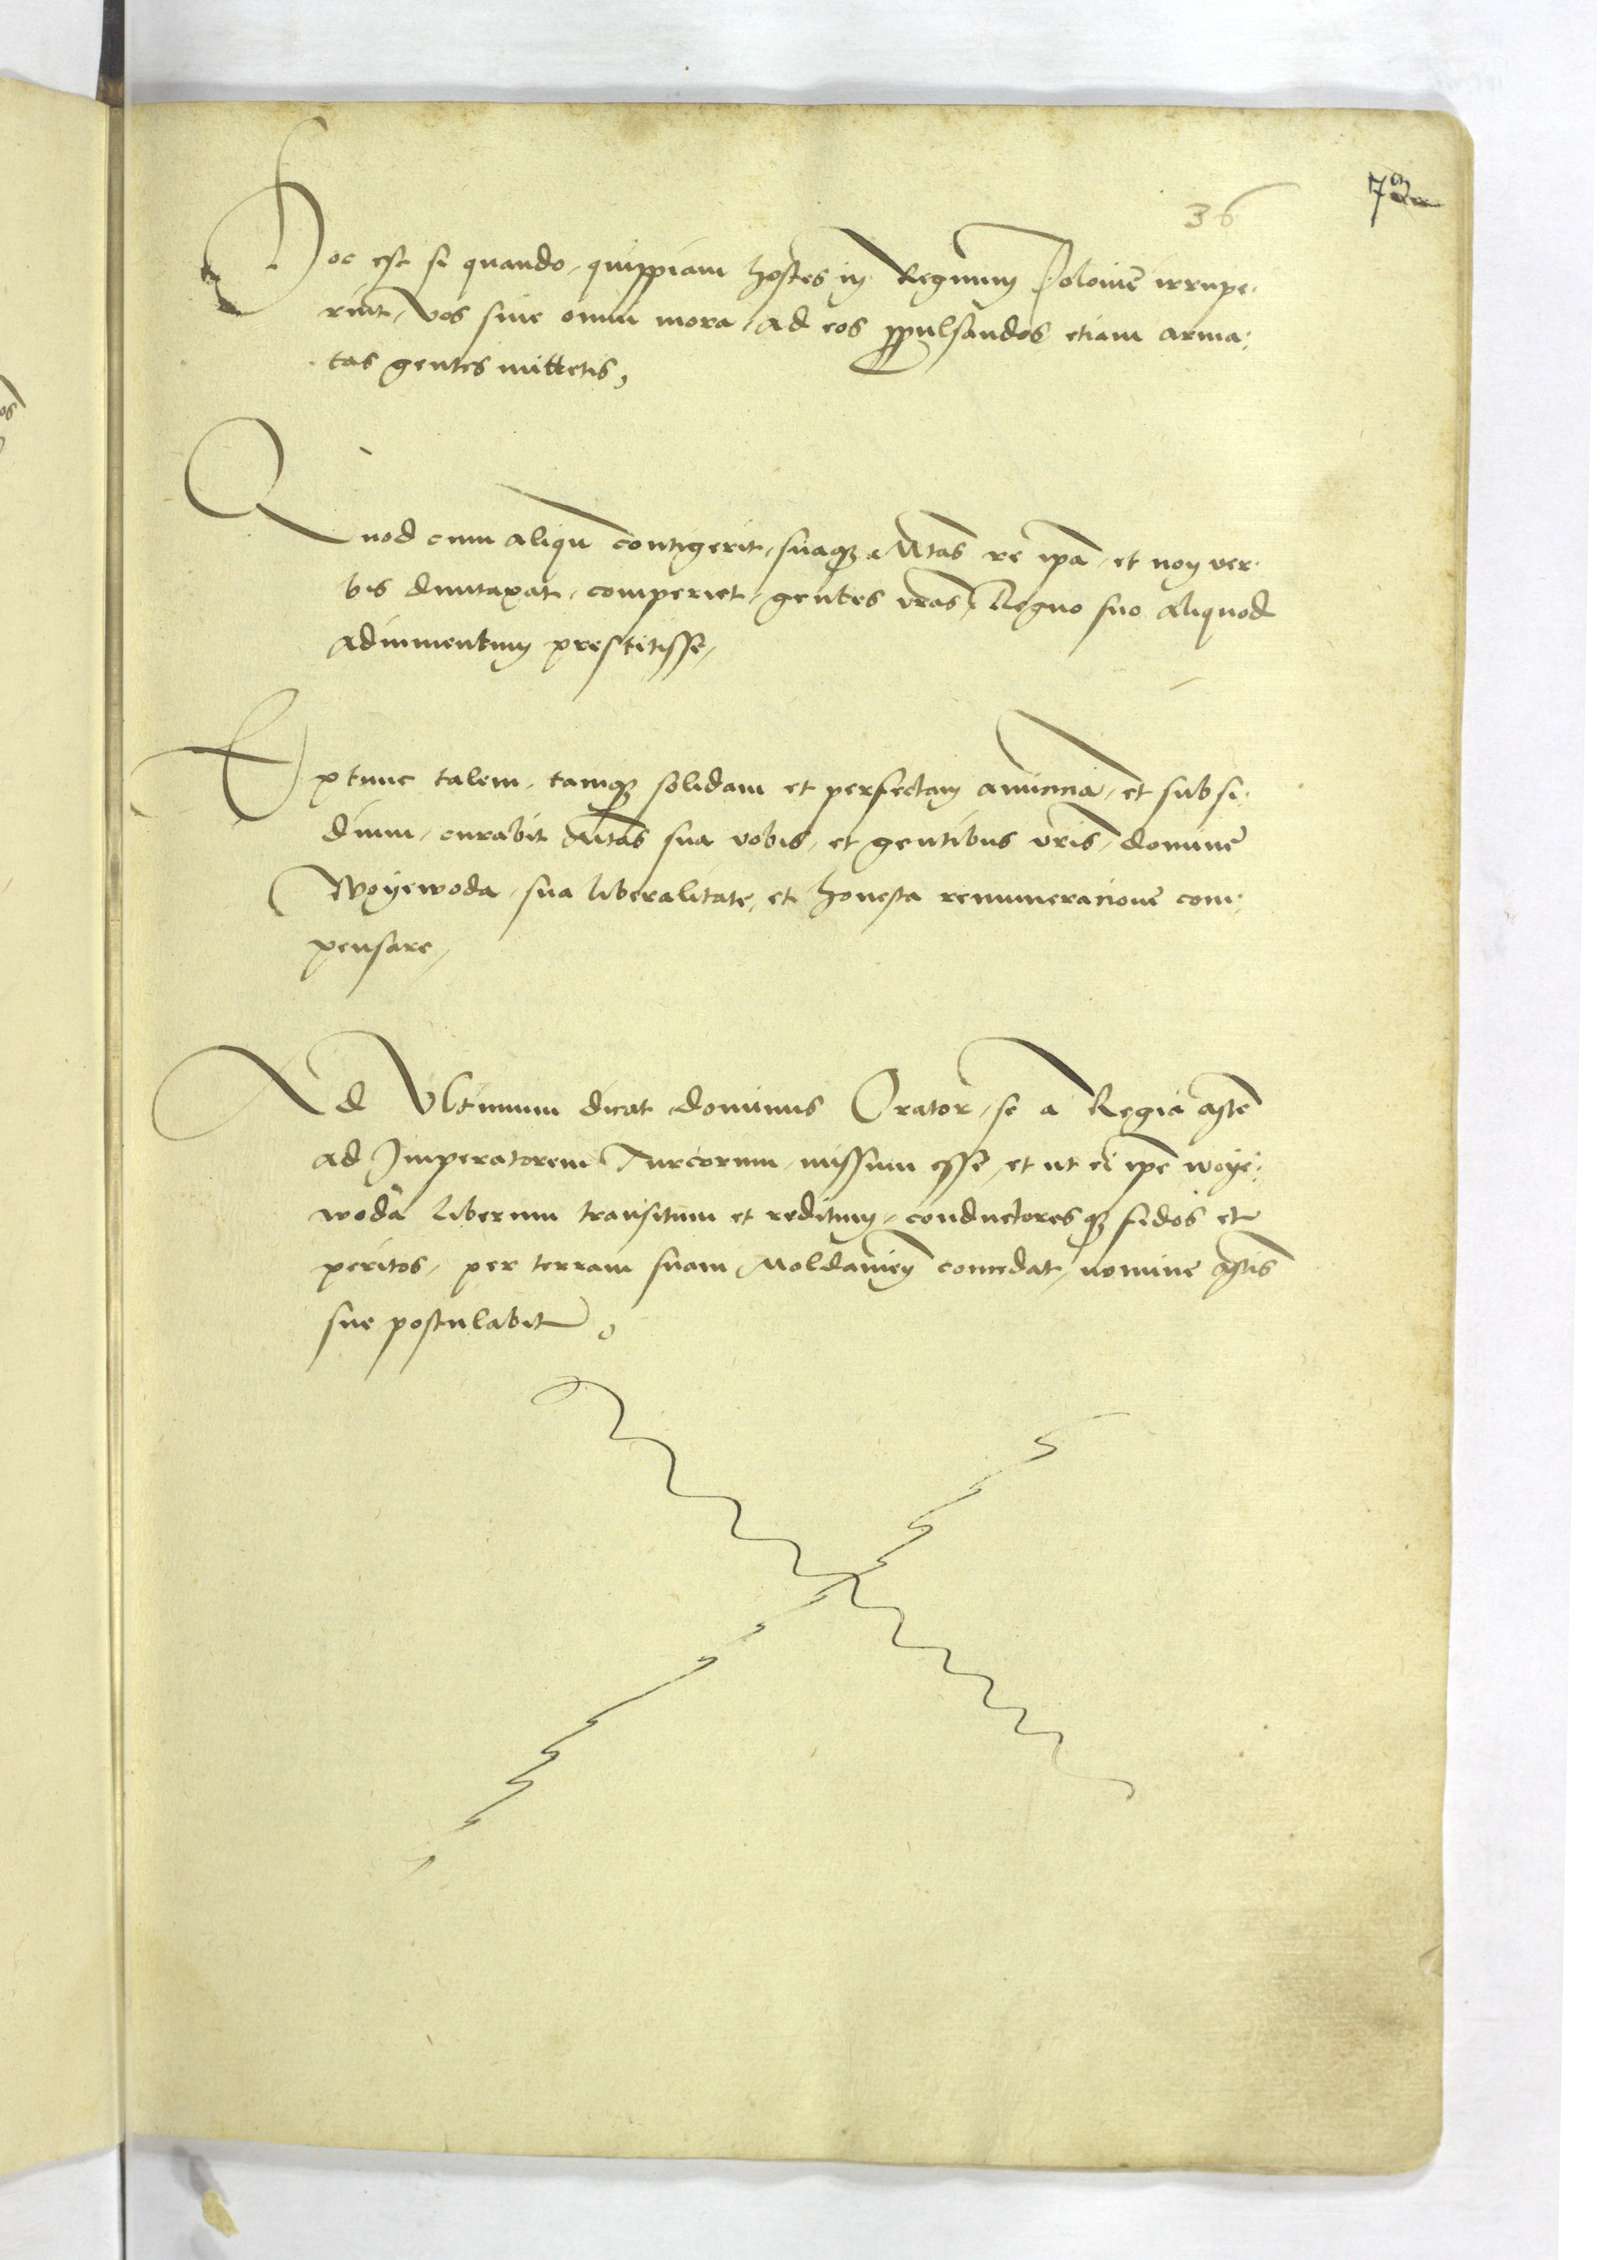 36
Hoc est si quando, quispiam hostes in Regnum Polonie irrupe:
rint, vos sine omni mora, ad eos propulsandos etiam arma:
tas gentes mittetis,
Quod cum aliqn̄ contigerit, suaqȝ Mtas re ip̄a, et non ver:
bis duntaxat, comperiet, gentes vr̄as, Regno suo aliquod
adiumentum prestitisse,
Extunc talem, tamqȝ solidam et perfectam amiciciā, et subsi:
dium, curabit Mtas sua vobis, et gentibus vr̄is, domine
Woyewoda, sua liberalitate, et honesta remuneracione com:
pensare,
Ad Vltimum dicat dominus Orator, se a Regia Mte
ad Imperatorem Turcorum, missum esse, et ut ei ip̄e woye:
woda liberum transitum et reditum, conductoresqȝ fidos et
peritos, per terram suam Moldavien̄ concedat, nomine Mtis
sue postulabit,